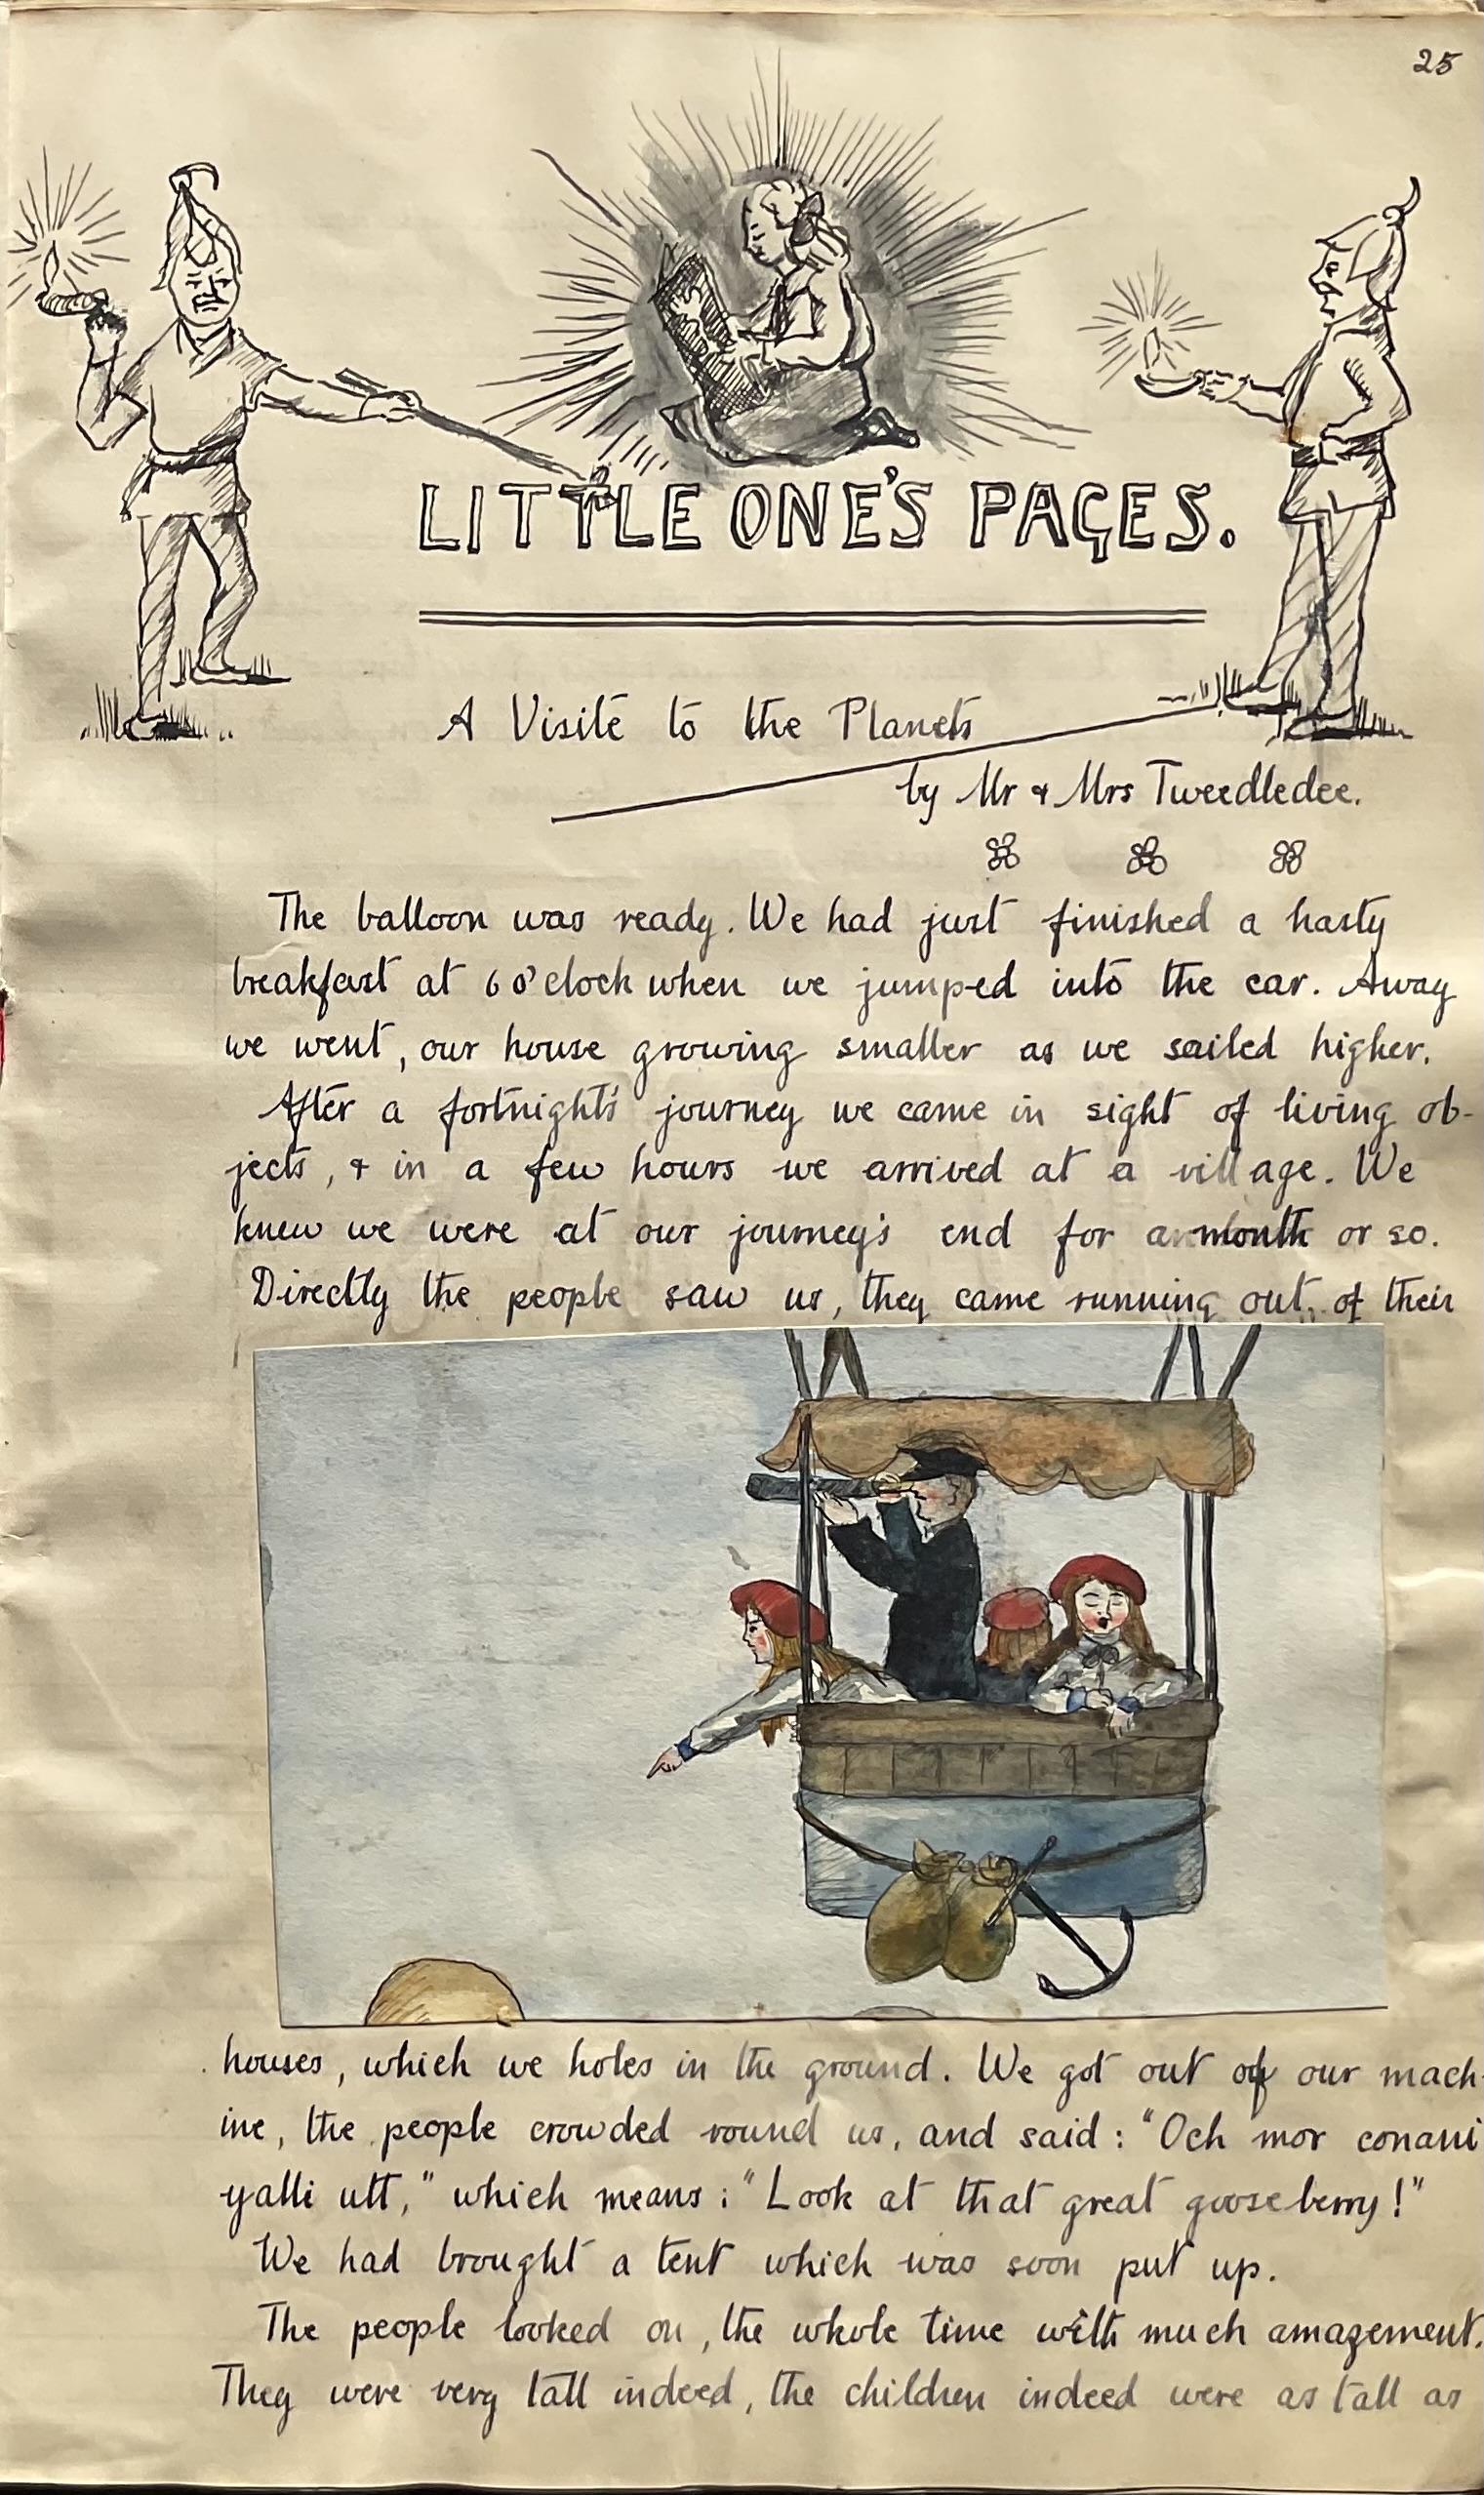 25
LITTLE ONE'S PAGES.
A Visite to the Planets
by Mr & Mrs Tweedledee.
The balloon was ready. We had just finished a hasty
breakfast at 6 o'clock when we jumped into the car. Away
we went, our house growing smaller as we sailed higher.
After a fortnight's journey we came in sight of living ob-
jects, & in a few hours we arrived at a village. We
knew we were at our journey's end for a month or so.
Directly the people saw us, they came running out of their
houses, which we holes in the ground. We got out of our mach-
ine, the people crowded round us, and said: "Och mor conani
yalli utt," which means: "Look at that great gooseberry!"
We had brought a tent which was soon put up.
The people looked on, the whole time with much amazement.
They were very tall indeed, the children indeed were as tall as